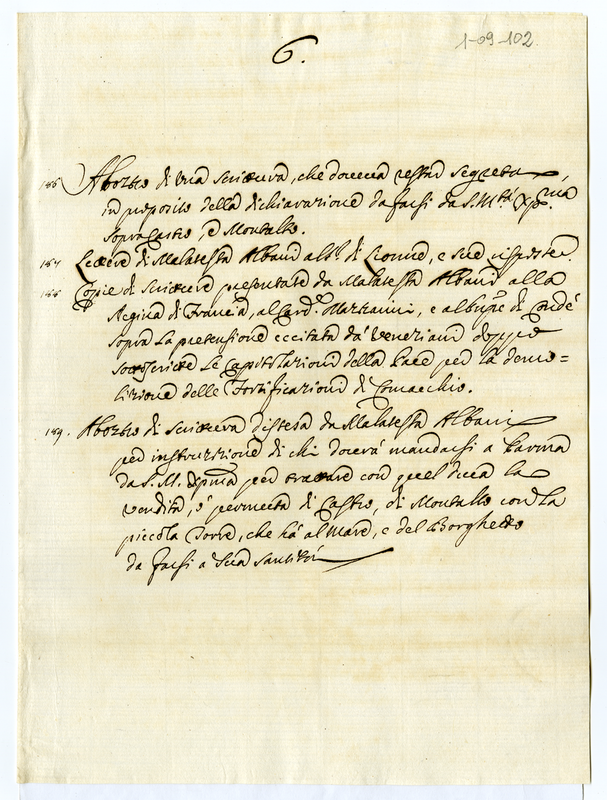 6.
1-09-102
186 Abozzo di una scrittura, che doveva restar segreta,
in proposito della dichiarazione da farsi da S. M.tà Xp.ma
sopra Castro, e Montalto.
187 Lettere di Malatesta Albani all' di Lionne, e sue risposte.
188 Copie di scritture presentate da Malatesta Albani alla
Regina di Francia, al Card.e Mazzarini, e al di Condé
sopra la pretensione eccitata da' Veneziani doppo
sottoscritte le Capitolazioni della Pace per la demo=
lizione delle Fortificazioni di Comacchio.
189. Abozzo di scrittura distesa da Malatesta Albani
per instruzzione di chi dovea mandarsi a Parma
da S. M. Xpma per trattare con quel Duca la
vendita, o' permuta di Castro, di Montalto con la
piccola Torre, che hà al Mare, e del Borghetto
da farsi a Sua Santità